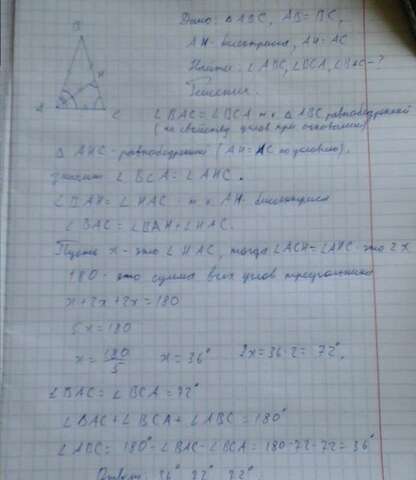 B
Дано: △ABC, AB=BC,
AH- биссектриса, AH=AC
Найти: ∠ABC, ∠BCA, ∠BAC-?
Решение.
A H C
∠BAC=∠BCA т.к. △ABC равнобедренный
(по свойству углов при основании)
△ AHC-равнобедренный (AH=AC по условию),
значит ∠BCA=∠AHC.
∠BAH=∠HAC - т.к. AH- биссектриса
∠BAC=∠BAH+∠HAC.
Пусть x- это ∠HAC, тогда ∠ACH=∠AHC-это 2x
180-это сумма всех углов треугольника
x+2x+2x=180
5x=180
x=180/5 x=36° 2x=36·2=72°.
∠BAC=∠BCA=72°
∠BAC+∠BCA+∠ABC=180°
∠ABC=180°-∠BAC-∠BCA=180-72-72=36°
Ответ: 36° 72° 72°.